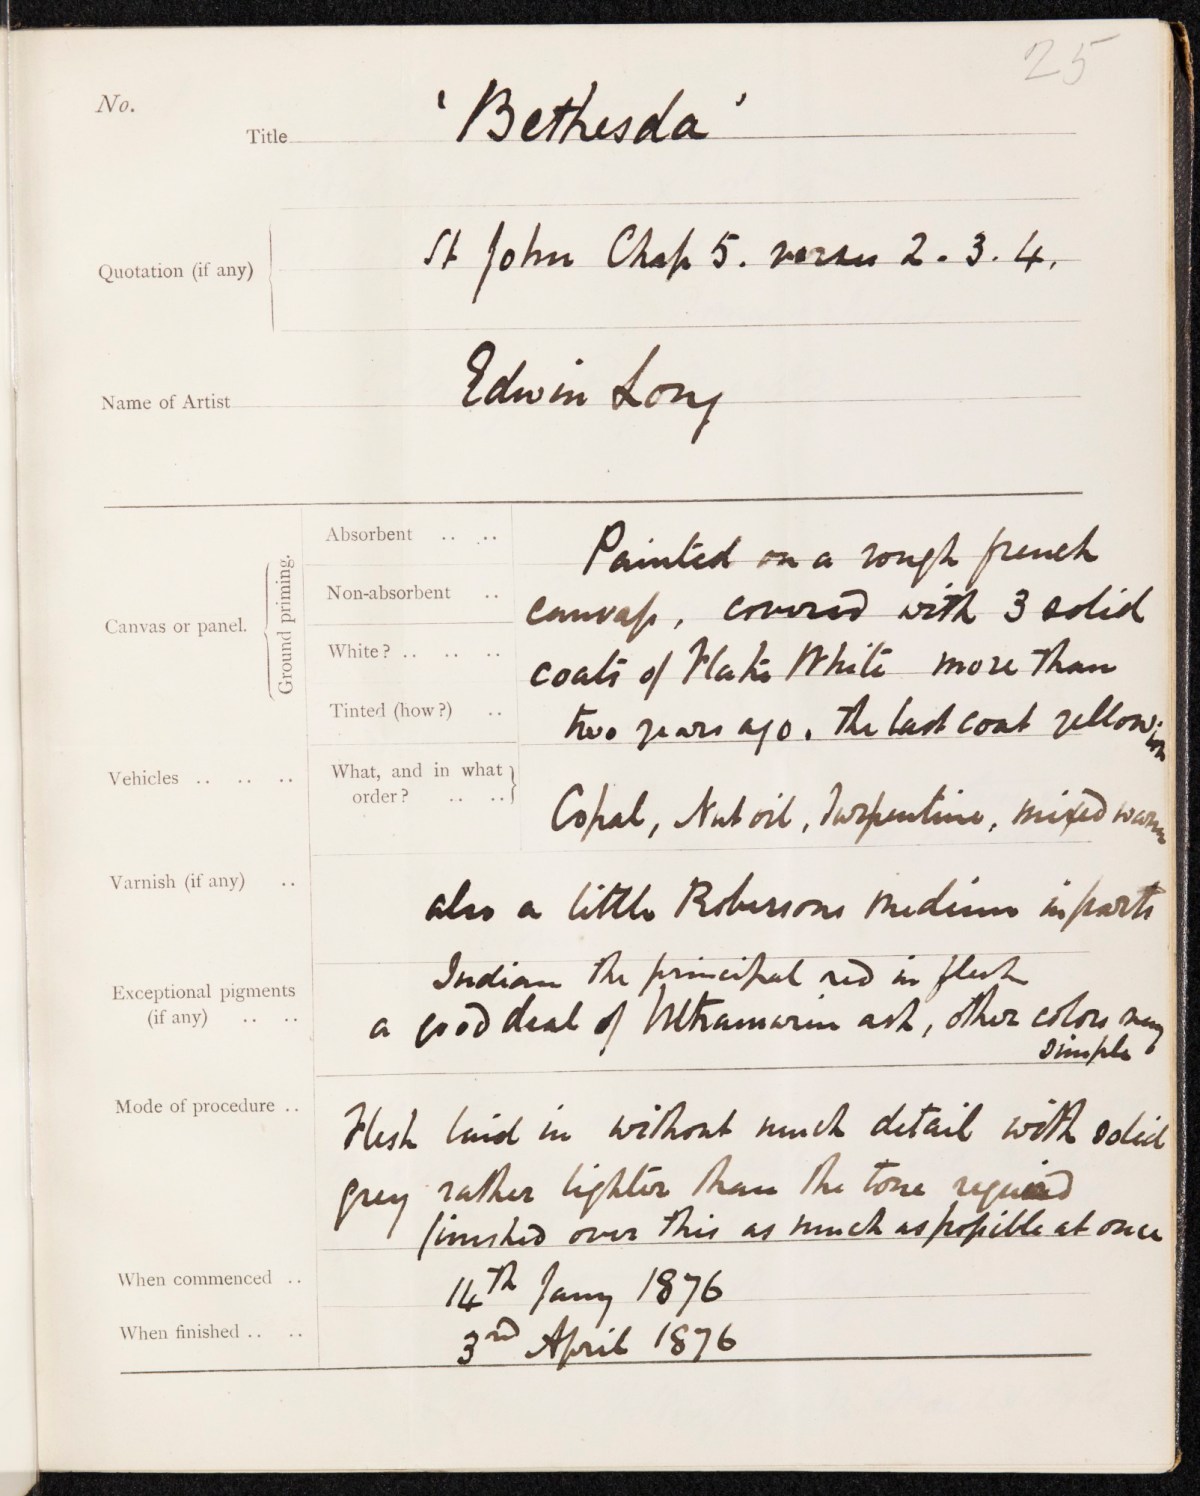 25
No.
Title 'Bethesda'
Quotation (if any) St John Chap 5. verses 2. 3. 4.
Name of Artist Edwin Long
Canvas or panel. Ground priming.
Absorbent .. ..
Non-absorbent ..
White? .. .. ..
Tinted (how?) ..
Painted on a rough french
canvass, covered with 3 solid
coats of Flake White more than
two years ago. the last coat yellowish
Vehicles .. .. .. What, and in what
order? .. ..
Copal, Nut oil, Turpentine, mixed warm
Varnish (if any) ..
also a little Robersons medium in parts
Exceptional pigments
(if any) .. ..
Indian the principal red in flesh
a good deal of Ultramarine ash, other colors very
simple
Mode of procedure ..
Flesh laid in without much detail with solid
grey rather lighter than the tone required
finished over this as much as possible at once
When commenced .. 14th Jany 1876
When finished .. .. 3rd April 1876